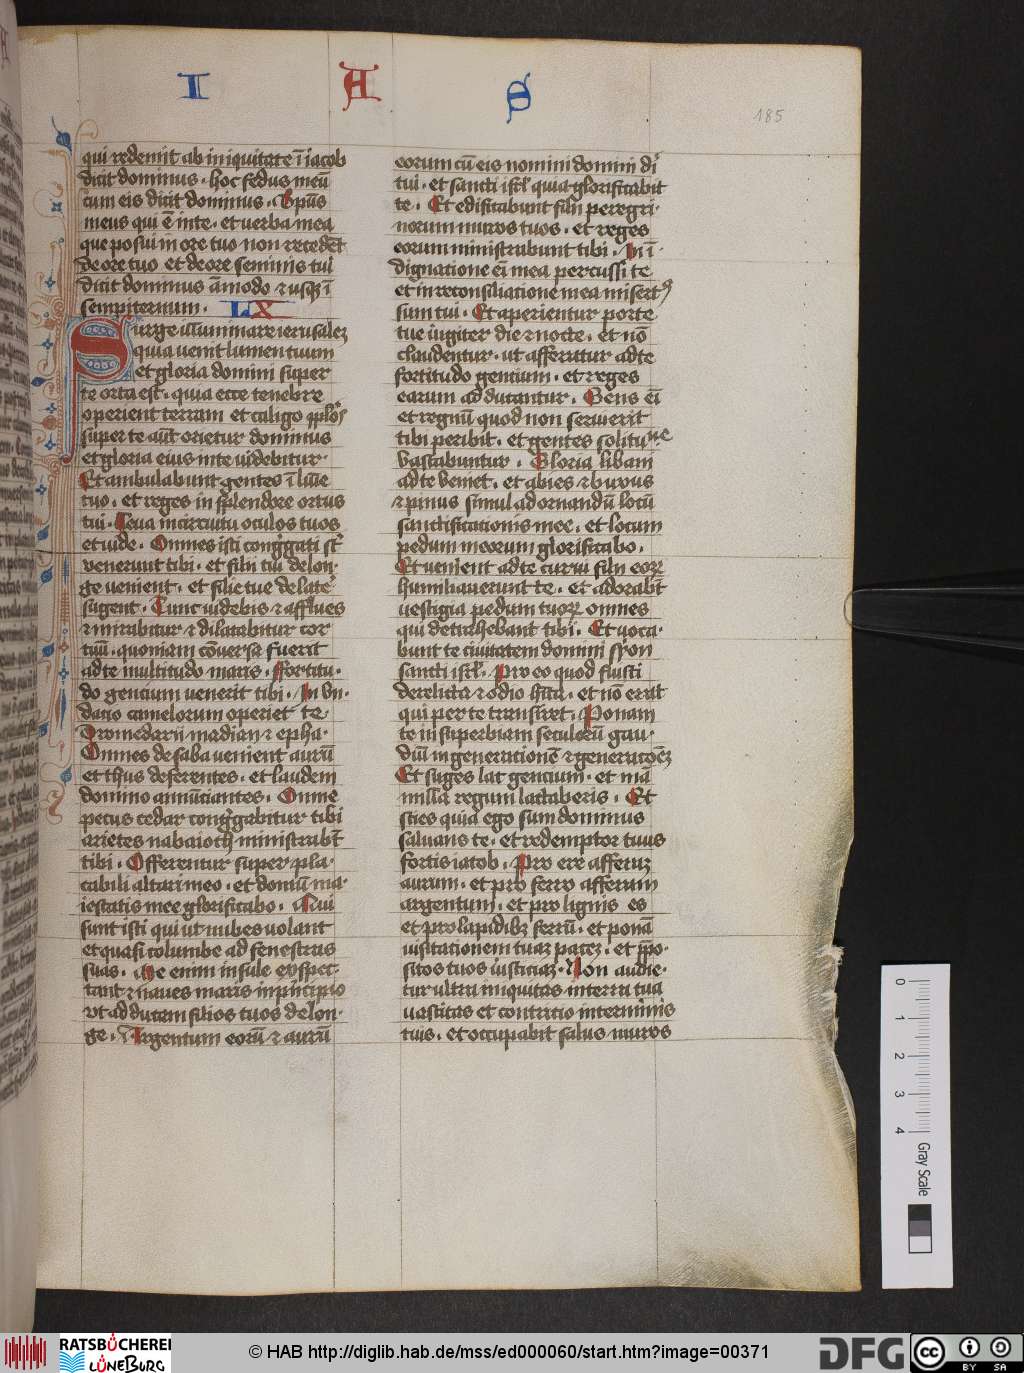 I H S
185
qui redemit ab iniquitate ī iacob
dicit dominus · hoc fedus meū
cum eis dicit dominus · Spūs
meus qui ē in te · et uerba mea
que posui in ore tuo non recedēt
de ore tuo et de ore seminis tui
dicit dominus āmodo ⁊ usqȝ ī
sempiternum · LX
Surge illuminare ierusalēȝ
quia uenit lumen tuum
et gloria domini super
te orta est · quia ecce tenebre
operient terram et caligo pplōs
super te aūt orietur dominus
et gloria eius in te uidebitur·
Et ambulabunt gentes ī lūīe
tuo · et reges in splendore ortus
tui · Leua in circuitu oculos tuos
et uide · Omnes isti congͥgati sͭ
venerunt tibi · et filii tui de lon·
ge uenient · et filie tue de lateͬ
sugent · Tunc uidebis ⁊ afflues
⁊ mirabitur ⁊ dilatabitur cor
tuū · quoniam cōuersa fuerit
ad te multitudo maris · ffortitu·
do gentium venerit tibi · In vn·
dacio camelorum operiet te
Dromedarii madian ⁊ epha·
Omnes de saba uenient aurū
et thus deferentes · et laudem
domino annūciantes · Omne
pecus cedar congͥgabitur tibi
arietes nabaioth ministrabūt
tibi · Offerentur super pla·
cabili altari meo · et domū ma·
iestatis mee glorificabo · Qui
sunt isti qui ut nubes uolant
et quasi columbe ad fenestras
suas · Me enim insule exspec·
tant ⁊ naues maris in pͥncipio
vt adducam filios tuos de lon·
ge · Argentum eorū ⁊ aurū
eorum cū eis nomini domini dī
tui · et sancti isrł quia glorificabit
te · Et edificabunt filii peregri·
norum muros tuos · et reges
eorum ministrabunt tibi · In ī·
dignatione eī mea percussi te
et in reconsiliatione mea misertꝰ
sum tui · Et aperientur porte
tue iugiter die ⁊ nocte · et nō
claudentur · ut afferatur ad te
fortitudo gentium · et reges
earum adducantur · Gens eī
et regnū quod non seruierit
tibi peribit · et gentes solitudīe
vastabuntur · Gloria libani
ad te veniet · et abies ⁊ buxus
⁊ pinus simul ad ornandū locū
sanctificationis mee · et locum
pedum meorum glorificabo ·
Et venient ad te curui filii eoꝝ
humiliauerunt te · et adorabūt
uestigia pedum tuoꝝ omnes
qui detrahebant tibi · Et uoca·
bunt te ciuitatem domini syon
sancti isrł · Pro eo quod fuisti
derelicta ⁊ odio hīta · et nō erat
qui per te transiret · Ponam
te in superbiam seculorū gau·
diū in generationē ⁊ generacōēȝ
Et suges lac gentium · et mā
milla regum lactaberis · Et
scies quia ego sum dominus
saluans te · et redemptor tuus
fortis iacob · Pro ere afferaȝ
aurum · et pro ferro afferam
argentum · et pro lignis es
et pro lapidibȝ ferrū · et ponā
uisitationem tuaȝ paceȝ · et ppo·
sitos tuos iusticiaȝ · Non audie·
tur ultra iniquitas in terra tua
uastitas et contritio in terminis
tuis · et occupabit salus muros
0 1 2 3 4 Gray Scale
RATSBÜCHEREI LÜNEBURG
© HAB http://diglib.hab.de/mss/ed000060/start.htm?image=00371
DFG
cc BY SA